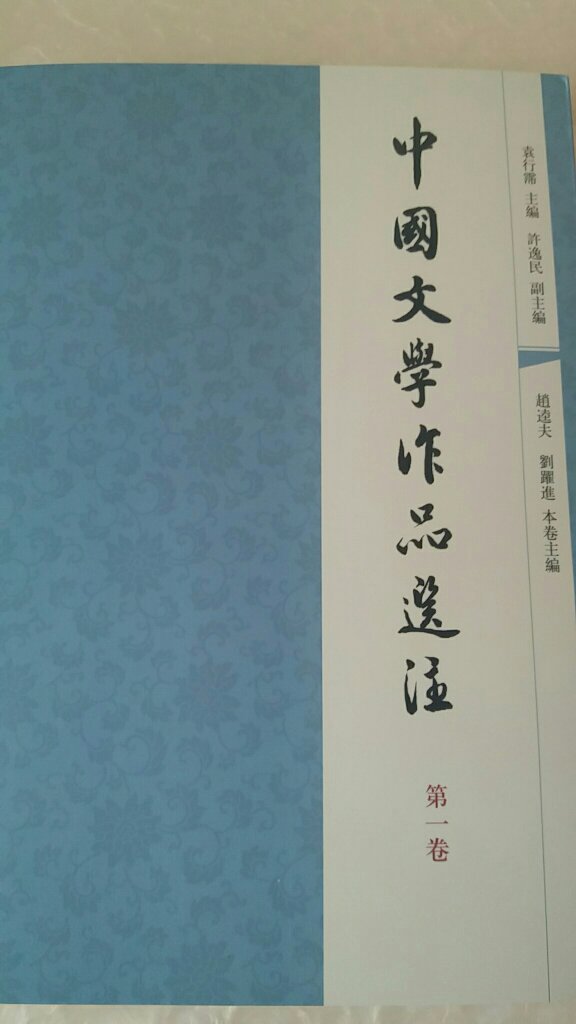 袁行霈 主編 許逸民 副主編
趙逵夫 劉躍進 本卷主編
中國文學作品選注
第一卷